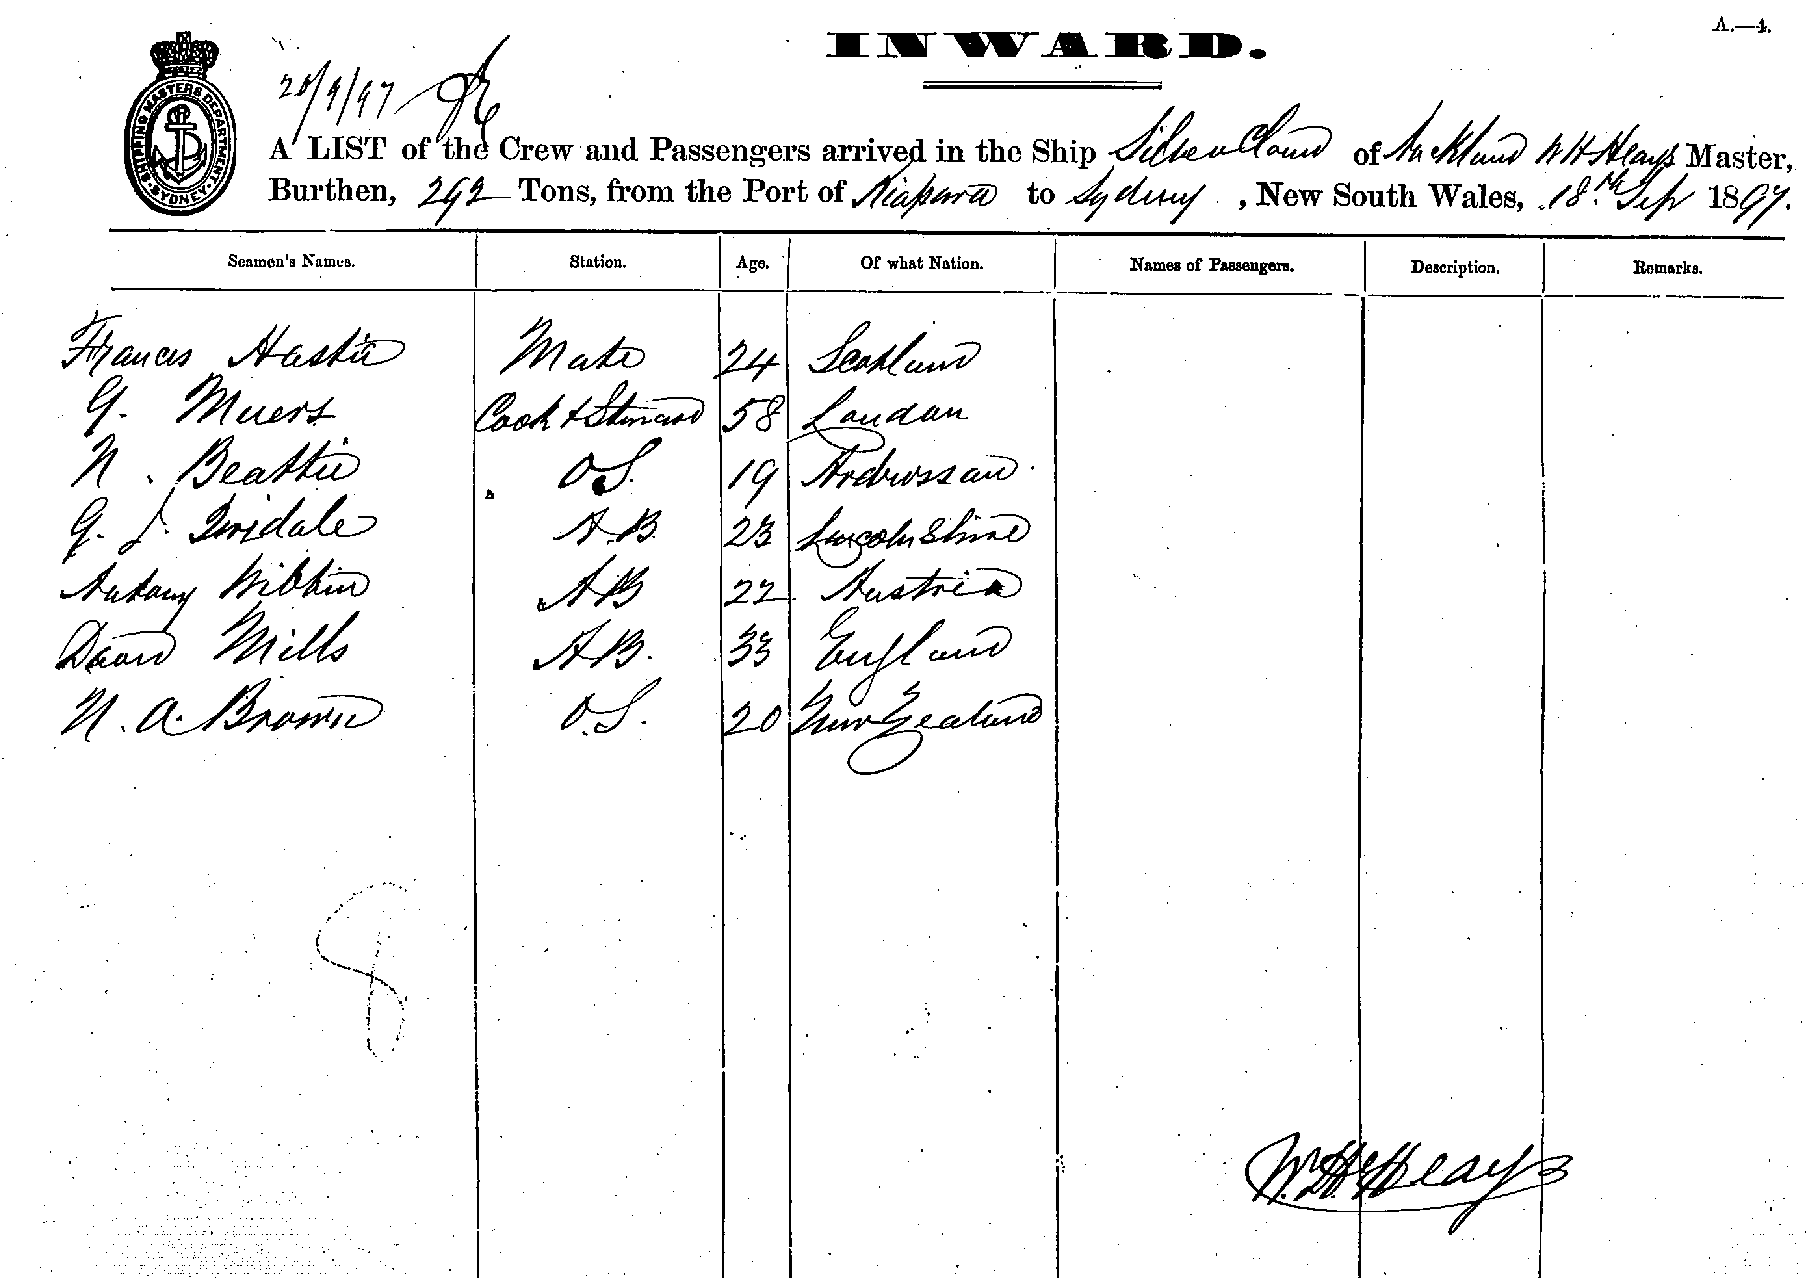 INWARD.
A.—4.
SHIPPING MASTERS DEPARTMENT
SYDNEY
20/9/97
A LIST of the Crew and Passengers arrived in the Ship Silver Cloud of Auckland W H Heays Master,
Burthen, 292 Tons, from the Port of to Sydney, New South Wales, 18th Sep 1897.
Seamen's Names. Station. Age. Of what Nation. Names of Passengers. Description. Remarks.
Frances Hastie Mate 24 Scotland
G. Muers Cook & Steward 58 London
N. Beattie O S. 19 Ardrossan
G. J. A.B. 23 Lincolnshire
Antony A B 22 Austria
David Mills A B. 33 England
N. A. Brown O.S. 20 New Zealand
8
W. H. Heays